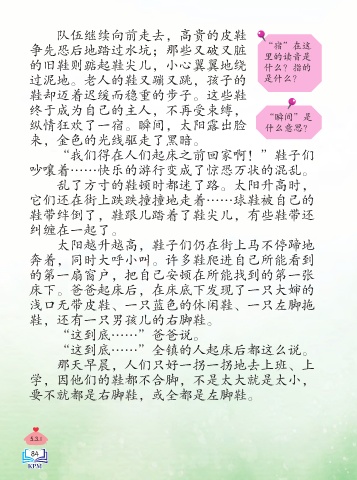 队伍继续向前走去，高贵的皮鞋
争先恐后地踏过水坑；那些又破又脏
的旧鞋则踮起鞋尖儿，小心翼翼地绕
过泥地。老人的鞋又蹦又跳，孩子的
鞋却迈着迟缓而稳重的步子。这些鞋
终于成为自己的主人，不再受束缚，
纵情狂欢了一宿。瞬间，太阳露出脸
来，金色的光线驱走了黑暗。
“我们得在人们起床之前回家啊！”鞋子们
吵嚷着……快乐的游行变成了惊恐万状的混乱。
乱了方寸的鞋顿时都迷了路。太阳升高时，
它们还在街上跌跌撞撞地走着……球鞋被自己的
鞋带绊倒了，鞋跟儿踏着了鞋尖儿，有些鞋带还
纠缠在一起了。
太阳越升越高，鞋子们仍在街上马不停蹄地
奔着，同时大呼小叫。许多鞋爬进自己所能看到
的第一扇窗户，把自己安顿在所能找到的第一张
床下。爸爸起床后，在床底下发现了一只大婶的
浅口无带皮鞋、一只蓝色的休闲鞋、一只左脚拖
鞋，还有一只男孩儿的右脚鞋。
“这到底……”爸爸说。
“这到底……”全镇的人起床后都这么说。
那天早晨，人们只好一拐一拐地去上班、上
学，因他们的鞋都不合脚，不是太大就是太小，
要不就都是右脚鞋，或全都是左脚鞋。
“宿”在这
里的读音是
什么？指的
是什么？
“瞬间”是
什么意思？
5.3.1
84
KPM